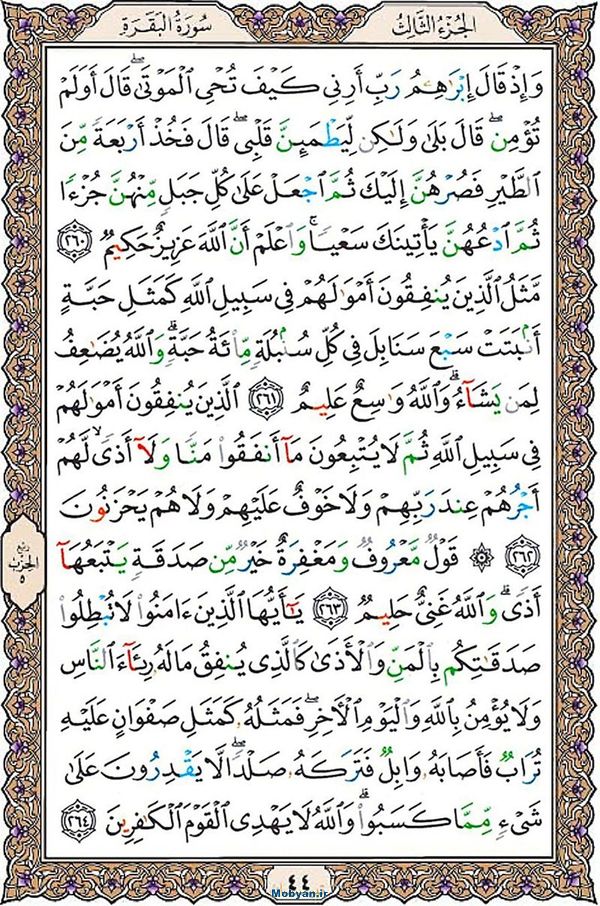 الجُزءُ الثَّالِثُ
سُورَةُ البَقَرَةِ
وَإِذۡ قَالَ إِبۡرَٰهِـۧمُ رَبِّ أَرِنِي كَيۡفَ تُحۡيِ ٱلۡمَوۡتَىٰۖ قَالَ أَوَلَمۡ
تُؤۡمِنۖ قَالَ بَلَىٰ وَلَٰكِن لِّيَطۡمَئِنَّ قَلۡبِيۖ قَالَ فَخُذۡ أَرۡبَعَةٗ مِّنَ
ٱلطَّيۡرِ فَصُرۡهُنَّ إِلَيۡكَ ثُمَّ ٱجۡعَلۡ عَلَىٰ كُلِّ جَبَلٖ مِّنۡهُنَّ جُزۡءٗا
ثُمَّ ٱدۡعُهُنَّ يَأۡتِينَكَ سَعۡيٗاۚ وَٱعۡلَمۡ أَنَّ ٱللَّهَ عَزِيزٌ حَكِيمٞ ٢٦٠
مَّثَلُ ٱلَّذِينَ يُنفِقُونَ أَمۡوَٰلَهُمۡ فِي سَبِيلِ ٱللَّهِ كَمَثَلِ حَبَّةٍ
أَنۢبَتَتۡ سَبۡعَ سَنَابِلَ فِي كُلِّ سُنۢبُلَةٖ مِّاْئَةُ حَبَّةٖۗ وَٱللَّهُ يُضَٰعِفُ
لِمَن يَشَآءُۚ وَٱللَّهُ وَٰسِعٌ عَلِيمٌ ٢٦١ ٱلَّذِينَ يُنفِقُونَ أَمۡوَٰلَهُمۡ
فِي سَبِيلِ ٱللَّهِ ثُمَّ لَا يُتۡبِعُونَ مَآ أَنفَقُواْ مَنّٗا وَلَآ أَذٗى لَّهُمۡ
أَجۡرُهُمۡ عِندَ رَبِّهِمۡ وَلَا خَوۡفٌ عَلَيۡهِمۡ وَلَا هُمۡ يَحۡزَنُونَ
٢٦٢ ۞ قَوۡلٞ مَّعۡرُوفٞ وَمَغۡفِرَةٌ خَيۡرٞ مِّن صَدَقَةٖ يَتۡبَعُهَآ
أَذٗىۗ وَٱللَّهُ غَنِيٌّ حَلِيمٞ ٢٦٣ يَٰٓأَيُّهَا ٱلَّذِينَ ءَامَنُواْ لَا تُبۡطِلُواْ
صَدَقَٰتِكُم بِٱلۡمَنِّ وَٱلۡأَذَىٰ كَٱلَّذِي يُنفِقُ مَالَهُۥ رِئَآءَ ٱلنَّاسِ
وَلَا يُؤۡمِنُ بِٱللَّهِ وَٱلۡيَوۡمِ ٱلۡأٓخِرِۖ فَمَثَلُهُۥ كَمَثَلِ صَفۡوَانٍ عَلَيۡهِ
تُرَابٞ فَأَصَابَهُۥ وَابِلٞ فَتَرَكَهُۥ صَلۡدٗاۖ لَّا يَقۡدِرُونَ عَلَىٰ
شَيۡءٖ مِّمَّا كَسَبُواْۗ وَٱللَّهُ لَا يَهۡدِي ٱلۡقَوۡمَ ٱلۡكَٰفِرِينَ ٢٦٤
ربع
الحزب
٥
٤٤
Mobyan.ir